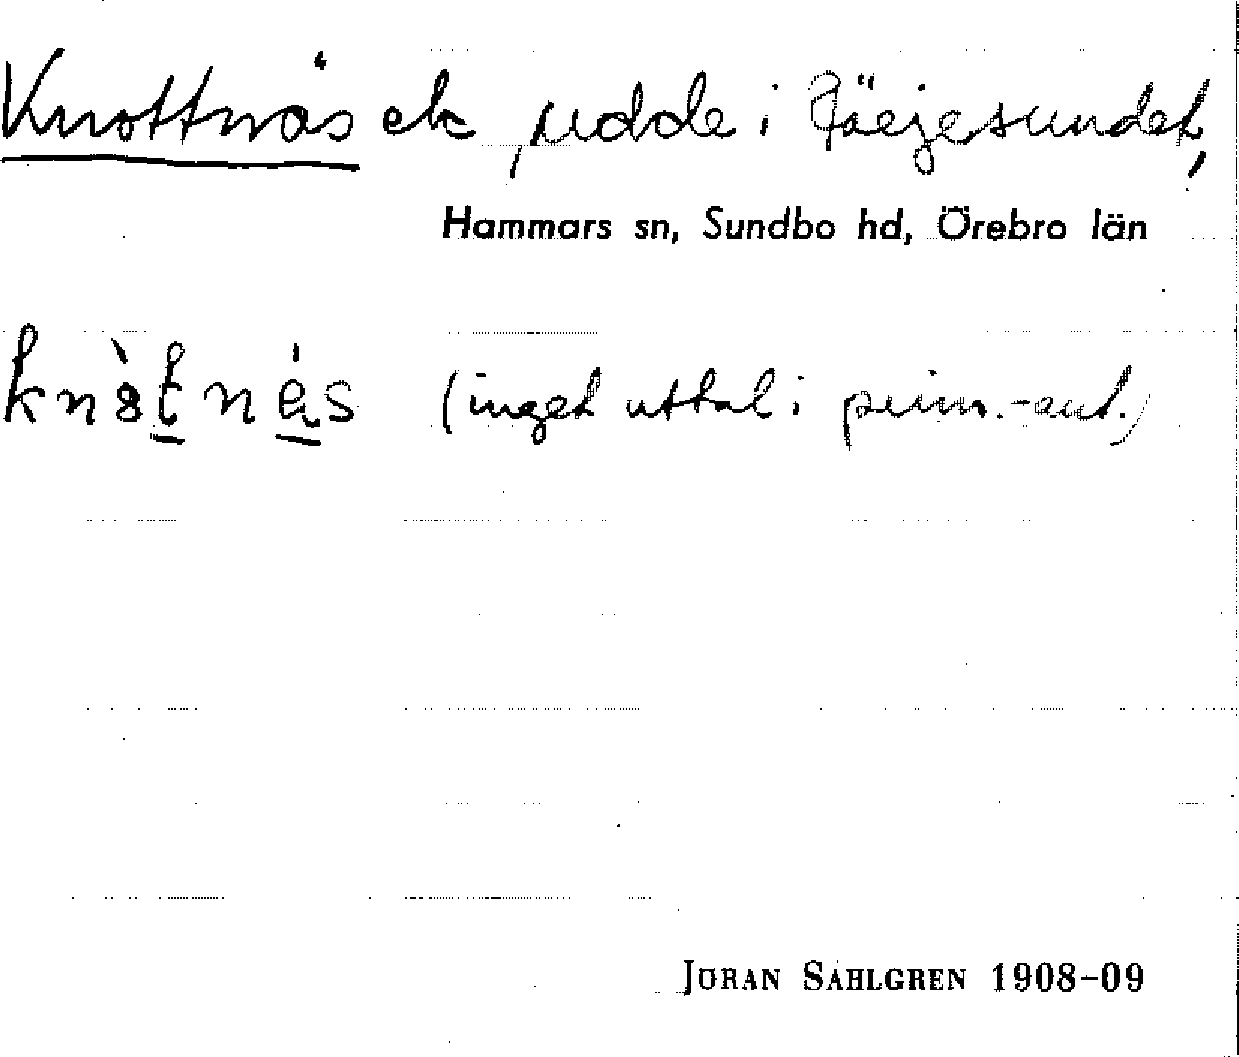 Knottnäs ek, udde i
Hammars sn, Sundbo hd, Örebro län
(inget uttal i prim.-ant.)
JÖRAN SAHLGREN 1908–09